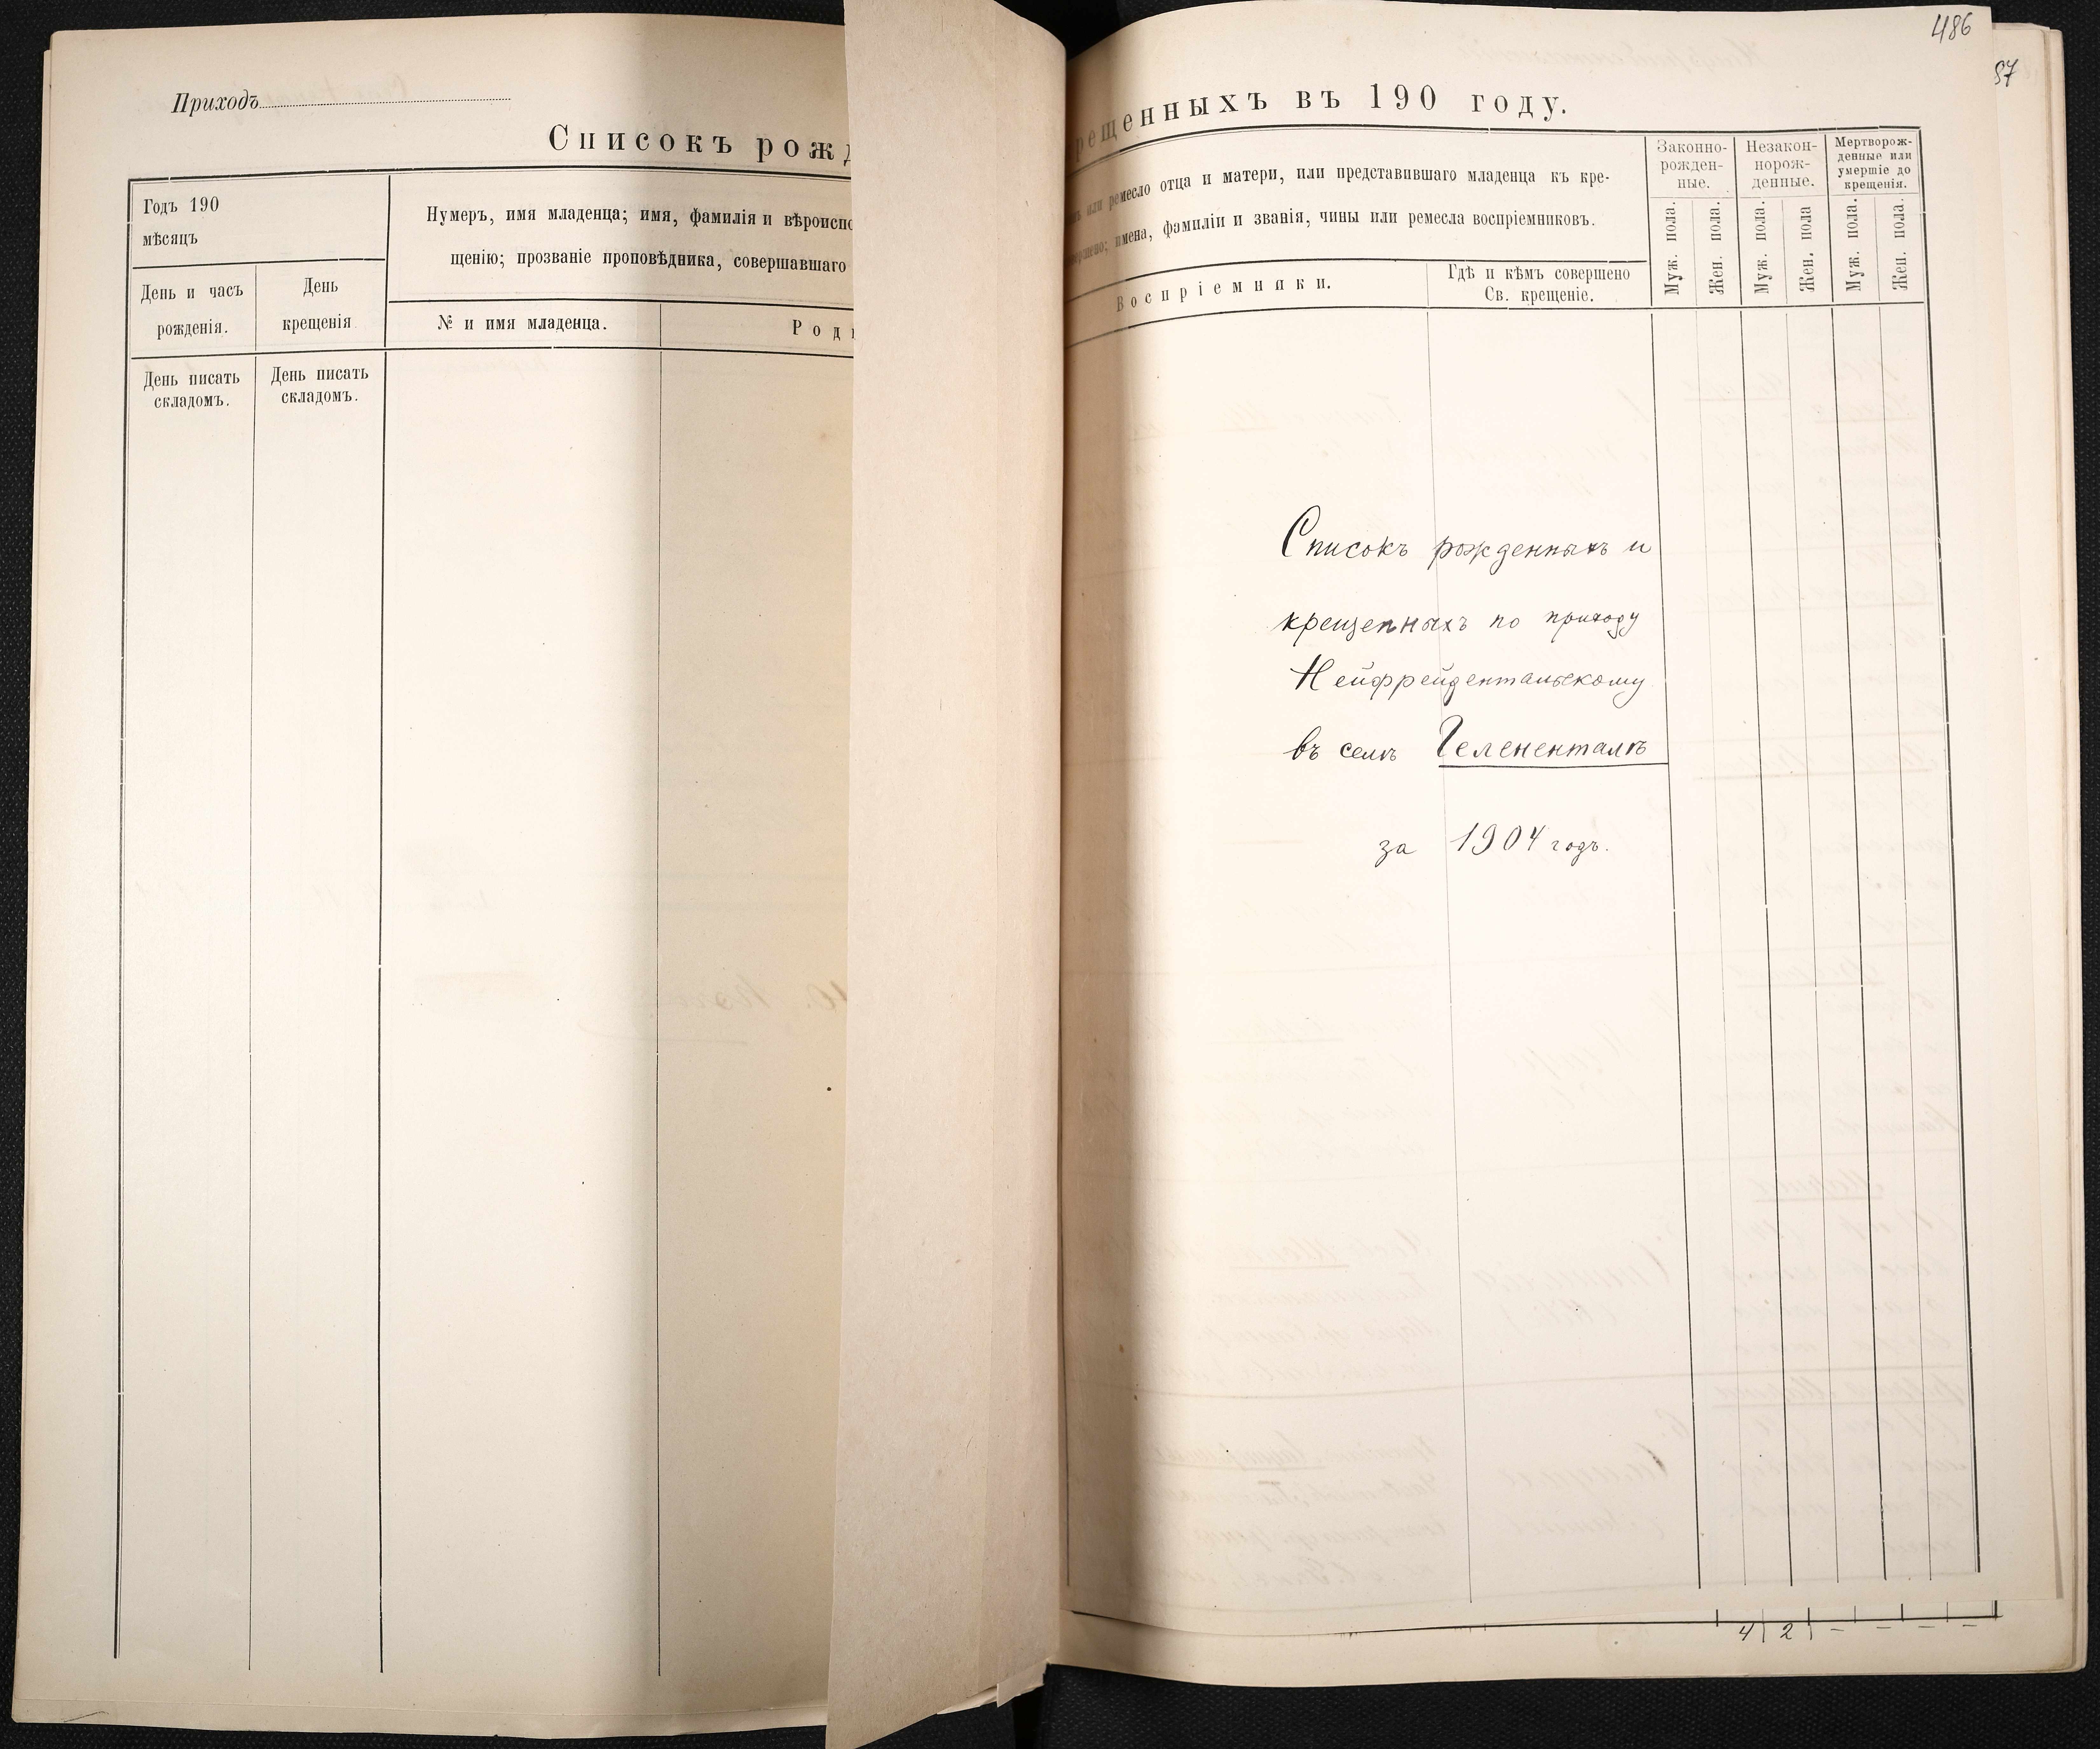 Приходъ
Списокъ рожд
Годъ 190
мѣсяцъ
Нумеръ, имя младенца; имя, фамилія и вѣроиспо
щенію; прозваніе проповѣдника, совершавшаго
День и часъ
рожденія.
День
крещенія
№ и имя младенца.
Род
День писать
складомъ.
День писать
складомъ.
486
87
рещенныхъ въ 190 году.
или ремесло отца и матери, или представившаго младенца къ кре-
имена, фамиліи и званія, чины или ремесла воспріемниковъ.
Воспріемники.
Гдѣ и кѣмъ совершено
Св. крещеніе.
Законно-
рожден-
ные.
Незакон-
норож-
денные.
Мертворож-
денные или
умершіе до
крещенія.
Муж. пола.
Жен. пола.
Муж. пола.
Жен. пола
Муж. пола.
Жен. пола.
Списокъ рожденныхъ и
крещенныхъ по приходу
Нейфрейдентальскому
въ селѣ Гелененталѣ
за 1904 годъ.
4 2 - - - -